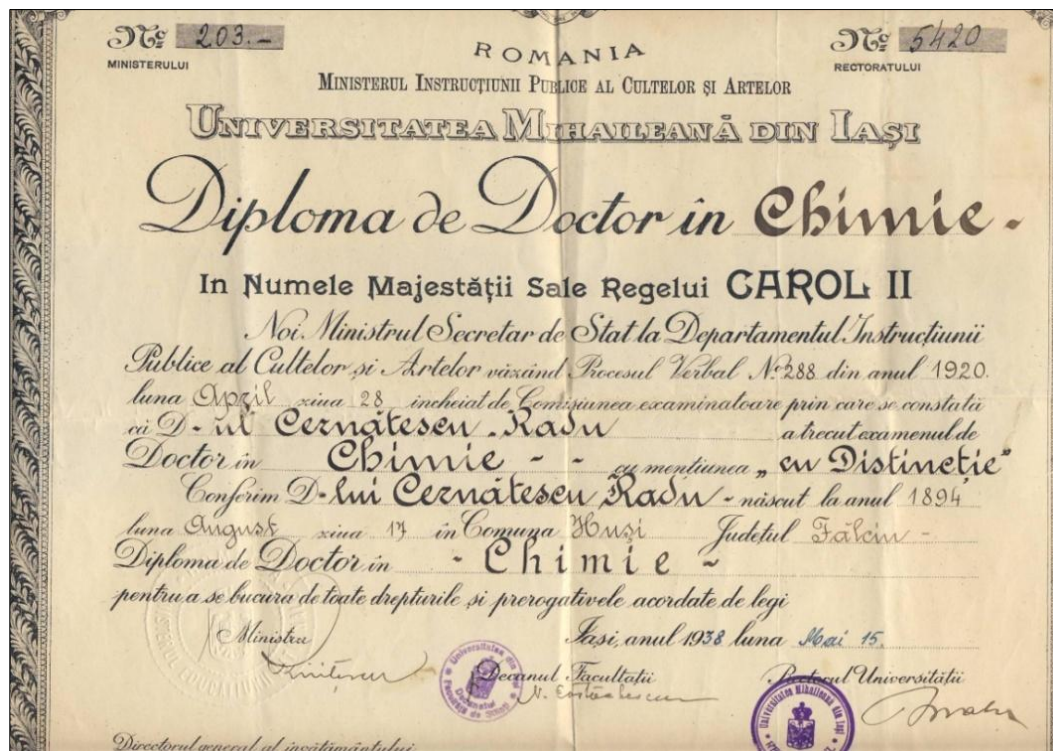 No 203.-
MINISTERULUI
No 5420
RECTORATULUI
ROMANIA
MINISTERUL INSTRUCȚIUNII PUBLICE AL CULTELOR ȘI ARTELOR
UNIVERSITATEA MIHAILEANĂ DIN IAȘI
Diploma de Doctor în Chimie -
In Numele Majestății Sale Regelui CAROL II
Noi Ministrul Secretar de Stat la Departamentul Instrucțiunii
Publice al Cultelor și Artelor văzând Procesul Verbal No 288 din anul 1920.
luna April ziua 28 incheiat de Comisiunea examinatoare prin care se constată
că D-ul Cernătescu Radu a trecut examenul de
Doctor în Chimie - - cu mențiunea „cu Distincție”
Conferim D-lui Cernătescu Radu - născut la anul 1894
luna August ziua 17 în Comuna Huși Județul Fălciu -
Diploma de Doctor în - Chimie -
pentru a se bucura de toate drepturile și prerogativele acordate de legi
Ministru
Iași, anul 1938 luna Mai 15.
Decanul Facultății
Rectorul Universității
Universitatea din
Decanatul
Facultății de Științi
Universitatea Mihaileană din Iași
Directorul general al învățământului